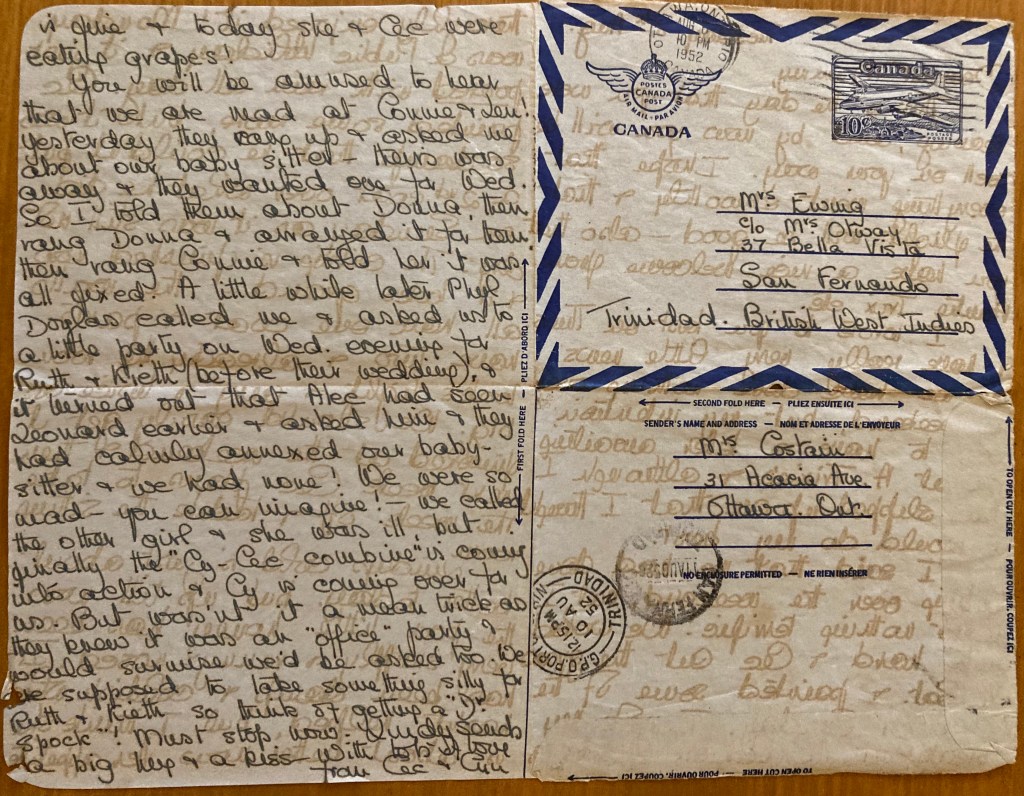 is fine & today she & Cec were
eating grapes!
You will be amused to hear
that we are mad at Connie & Len!
Yesterday they rang up & asked me
about our baby sitter - theirs was
away & they wanted one for Wed.
So I told them about Donna, then
rang Donna & arranged it for them,
then rang Connie & told her it was
all fixed. A little while later Phyl
Douglas called me & asked us to
a little party on Wed. evening for
Ruth & Kieth (before their wedding), &
it turned out that Alec had seen
Leonard earlier & asked him & they
had calmly annexed our baby-
sitter & we had none! We were so
mad - you can imagine! - we called
the other girl & she was ill, but
finally the "Cy-Cec combine" is coming
into action & Cy is coming over for
us. But wasn't it a mean trick as
they knew it was an "office" party &
would surmise we'd be asked too. We
are supposed to take something silly for
Ruth & Kieth so think of getting a "Dr
Spock"! Must stop now. Lindy sends
a big hug & a kiss - With lots of love
from Cec &
FIRST FOLD HERE — PLIEZ D'ABORD ICI
OTTAWA, ONTARIO
AUG
10 PM
1952
CANADA
POSTES
CANADA
POST
AIR MAIL · PAR AVION
CANADA
Canada
10¢
Mrs Ewing
c/o Mrs Otway
37 Bella Vista
San Fernando
Trinidad. British West Indies
SECOND FOLD HERE — PLIEZ ENSUITE ICI
SENDER'S NAME AND ADDRESS — NOM ET ADRESSE DE L'ENVOYEUR
Mrs Costain
31 Acacia Ave
Ottawa. Ont.
NO ENCLOSURE PERMITTED — NE RIEN INSÉRER
G.P.O. PORT
TRINIDAD
12.15 PM
10 AU
52
TO OPEN CUT HERE — POUR OUVRIR, COUPEZ ICI
TO OPEN CUT HERE — POUR OUVRIR, COUPEZ ICI